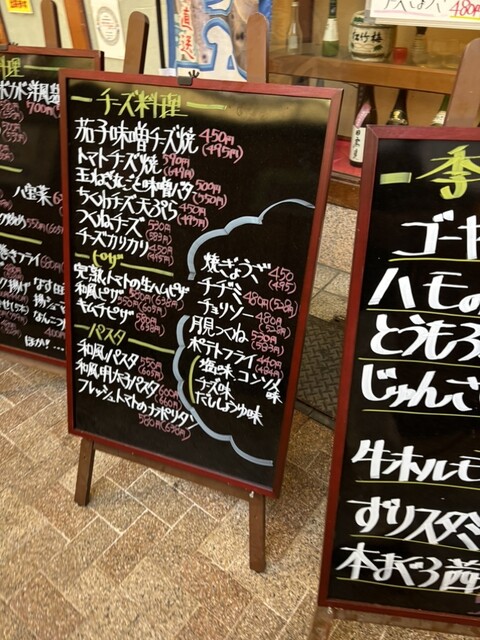 理ー
700円
八宝菜
ほか!…
ーチーズ料理ー
茄子味噌チーズ焼 450円(495円)
トマトチーズ焼 590円(649円)
玉ねぎ丸ごと味噌バタ 500円(550円)
ちくわチーズ天ぷら 450円(495円)
つくねチーズ 530円(583円)
チーズカリカリ 450円(495円)
ーピザー
完熟トマトの生ハムピザ
和風ピザ
キムチピザ
ーパスタ
和風パスタ 550円(605円)
和風明太パスタ 600円(660円)
フレッシュトマトのナポリタン
580円(638円)
焼ぎょうざ 450(495)
チヂミ 480円(528円)
チョリソー 480円(528円)
月見つくね
ポテトフライ 440円(484円)
塩味・コンソメ味
チーズ味
だししょうゆ味
直送
480円
松竹梅
ー季
ゴーヤ
ハモの
とうもろ
じゅんさ
牛ホルモ
ずリスタミ
本まぐろ